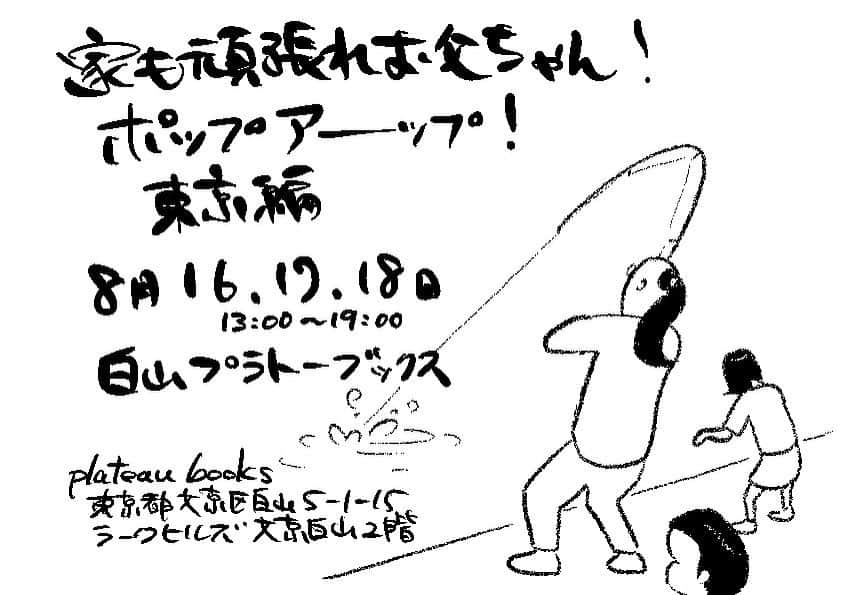 家も頑張れお父ちゃん!
ポップアーップ!
東京編
8月16.17.18日
13:00~19:00
白山プラトーブックス
plateau books
東京都文京区白山5-1-15
ラークヒルズ文京白山2階